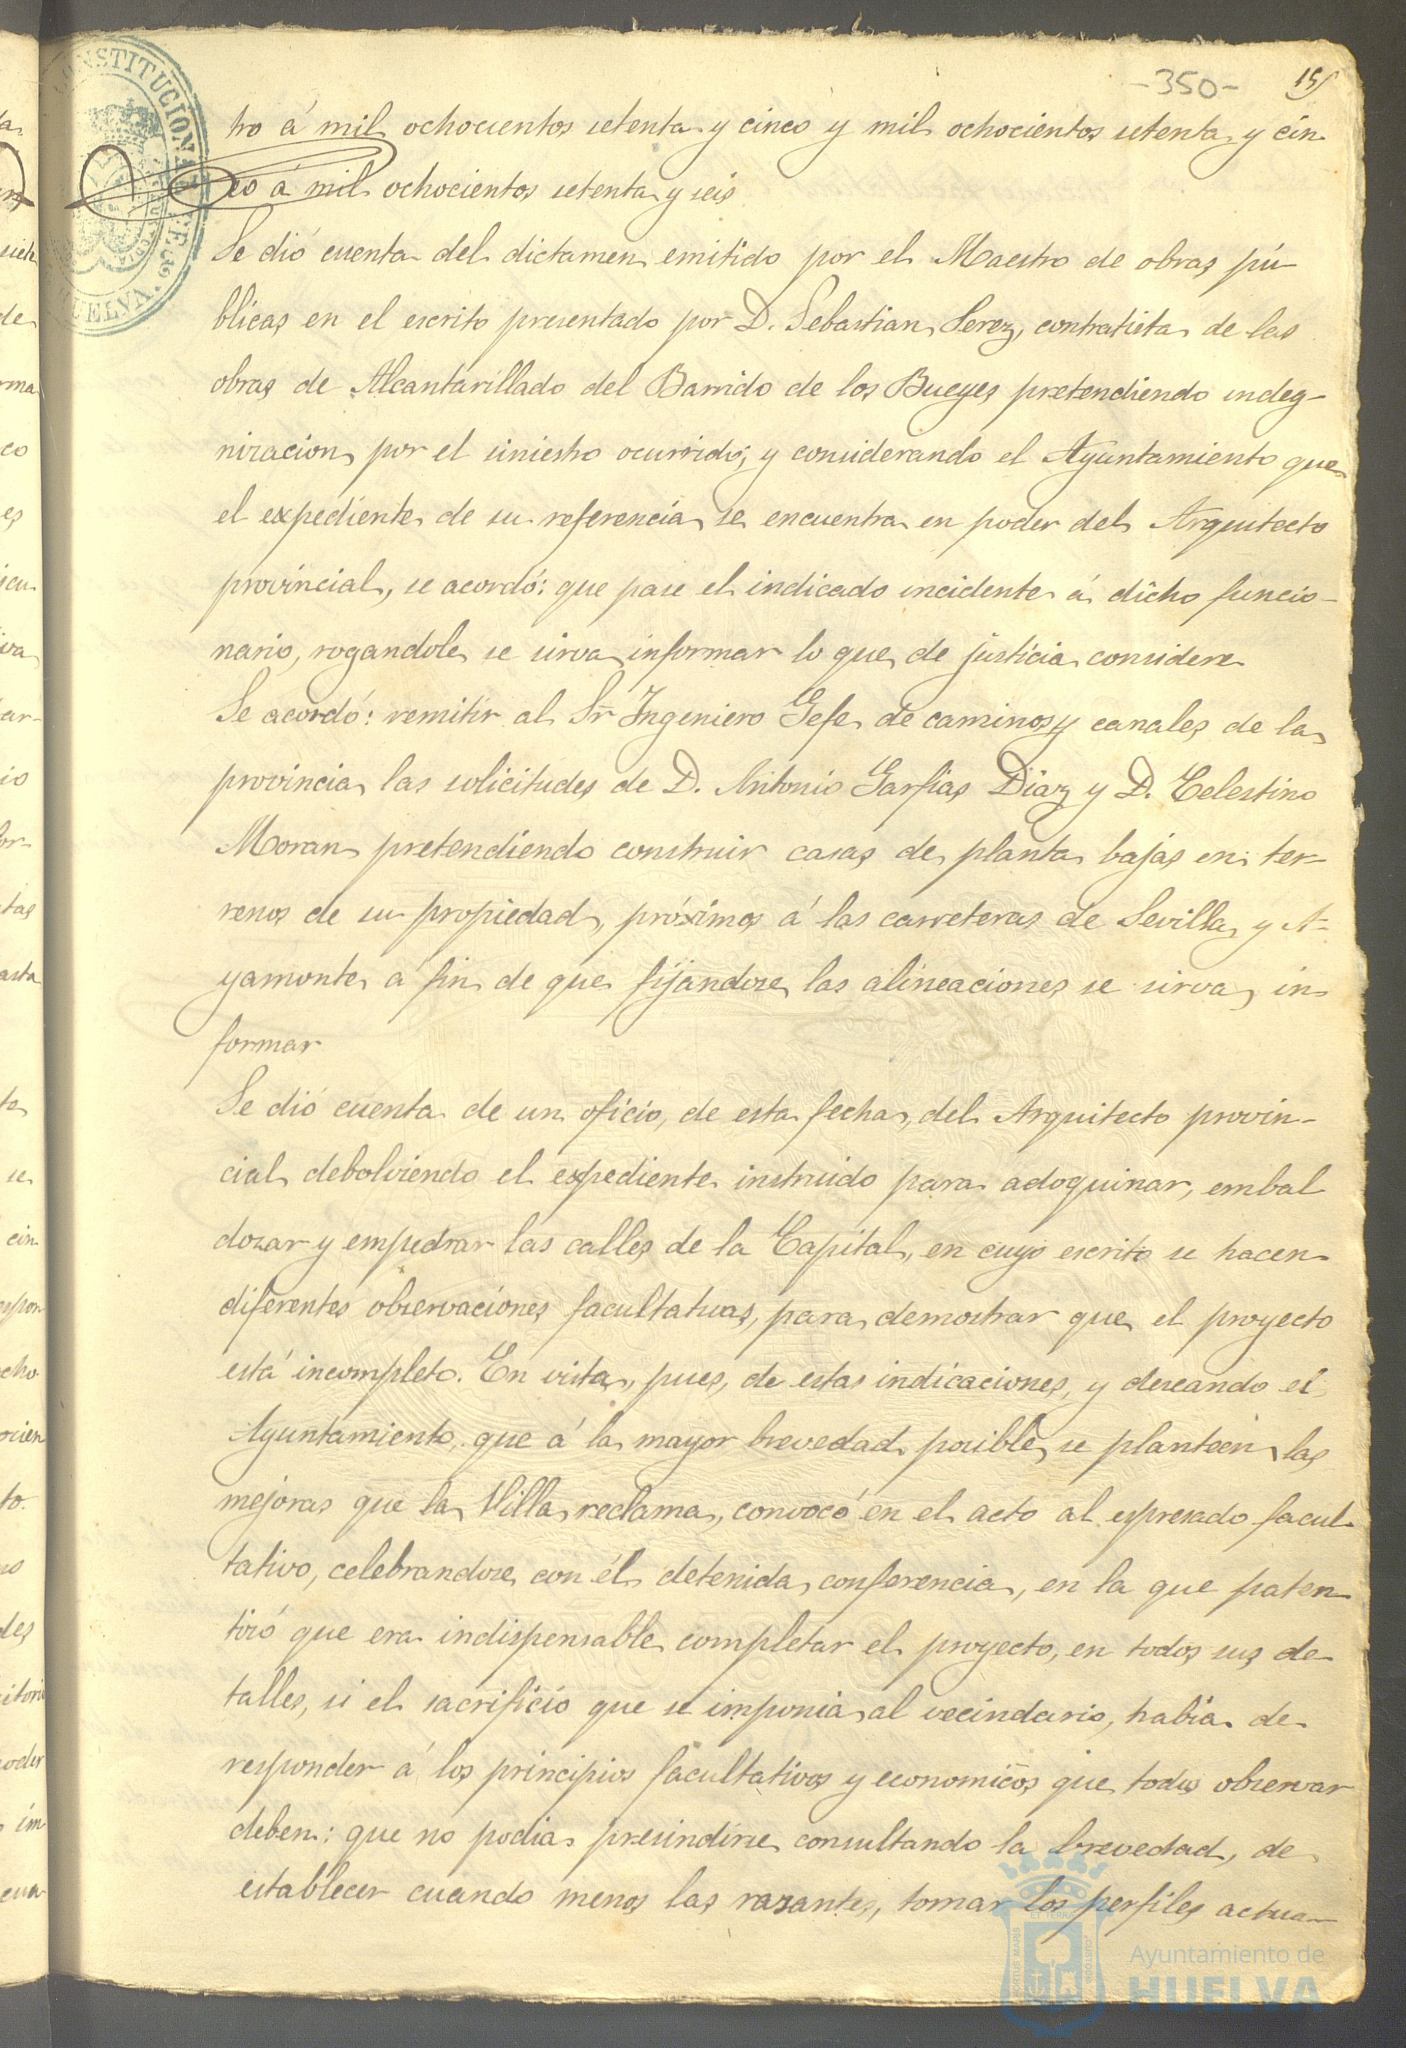 -350- 15
tro á mil ochocientos setenta y cinco y mil ochocientos setenta y cin
co á mil ochocientos setenta y seis
Se dió cuenta del dictamen emitido por el Maestro de obras pú-
blicas en el escrito presentado por D. Sebastian Perez, contratista de las
obras de Alcantarillado del Barrido de los Bueyes pretendiendo indeg-
nizacion por el siniestro ocurrido; y considerando el Ayuntamiento que
el expediente de su referencia se encuentra en poder del Arquitecto
provincial, se acordó: que pase el indicado incidente á dicho funcio-
nario, rogandole se sirva informar lo que de justicia considere
Se acordó: remitir al Sr Ingeniero Gefe de caminos y canales de la
provincia las solicitudes de D. Antonio Garfias Diaz y D. Celestino
Moran pretendiendo construir casas de planta bajas en ter-
renos de su propiedad, próximos á las carreteras de Sevilla y A-
yamonte á fin de que fijandose las alineaciones se sirva in
formar
Se dió cuenta de un oficio, de esta fecha, del Arquitecto provin-
cial debolviendo el expediente instruido para adoquinar, embal
dozar y empedrar las calles de la Capital, en cuyo escrito se hacen
diferentes observaciones facultativas, para demostrar que el proyecto
está incompleto. En vista, pues, de estas indicaciones, y deseando el
Ayuntamiento, que á la mayor brevedad posible, se planteen las
mejoras que la Villa reclama, convocó en el acto al espresado facul-
tativo, celebrandose con él detenida conferencia, en la que paten
tizó que era indispensable completar el proyecto, en todos sus de
talles, si el sacrificio que se imponia al vecindario, habia de
responder á los principios facultativos y economicos que todos observar
deben: que no podia presindirse consultando la brevedad, de
establecer cuando menos las razantes, tomar los perfiles actua-
CONSTITUCIONAL
HUELVA.
Ayuntamiento de
HUELVA